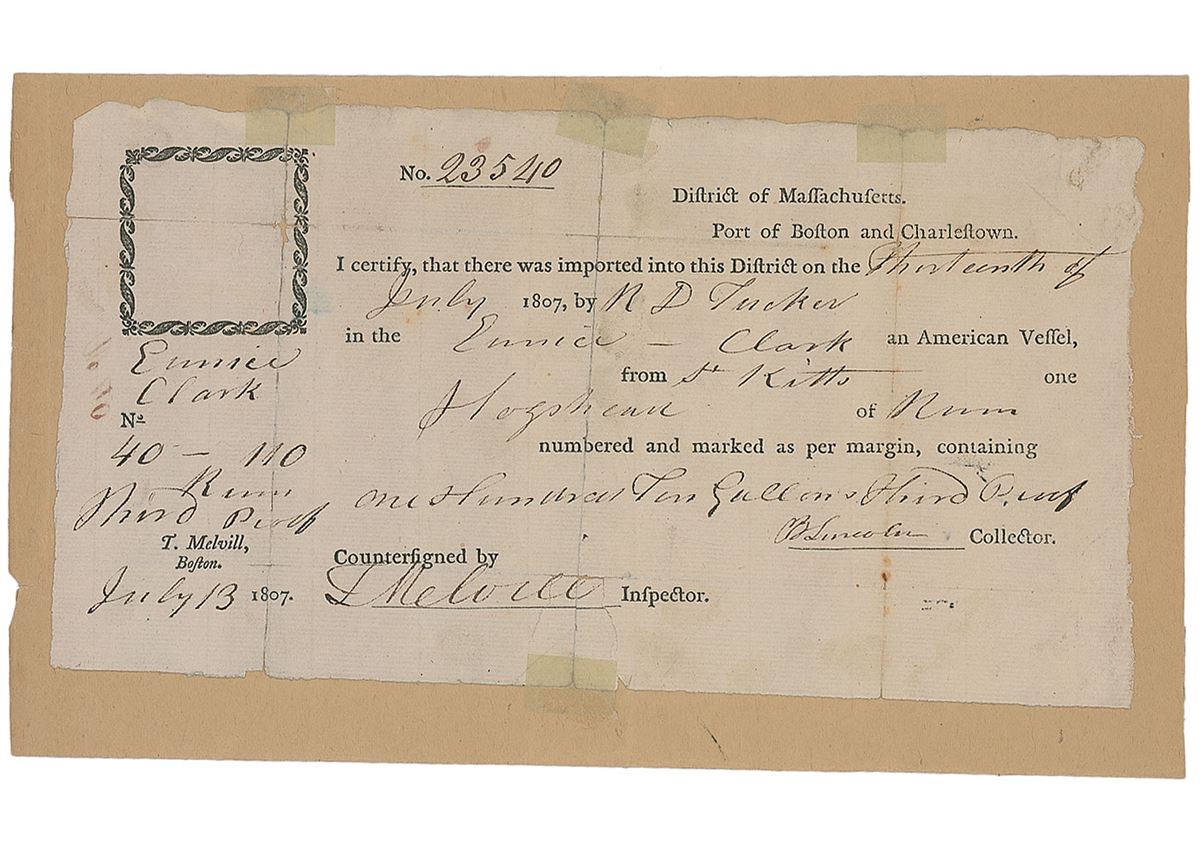 No. 23540
Diſtrict of Maſſachuſetts.
Port of Boſton and Charleſtown.
I certify, that there was imported into this Diſtrict on the Thirteenth of
July 1807, by R D Tucker
in the Eunice — Clark an American Veſſel,
from St Kitts one
Hogshead of Rum
numbered and marked as per margin, containing
One Hundred Ten Gallons Third Proof
B Lincoln Collector.
Counterſigned by
T Melvill Inſpector.
Eunice
Clark
No
40 — 110
Rum
Third Proof
T. Melvill,
Boſton.
July 13 1807.